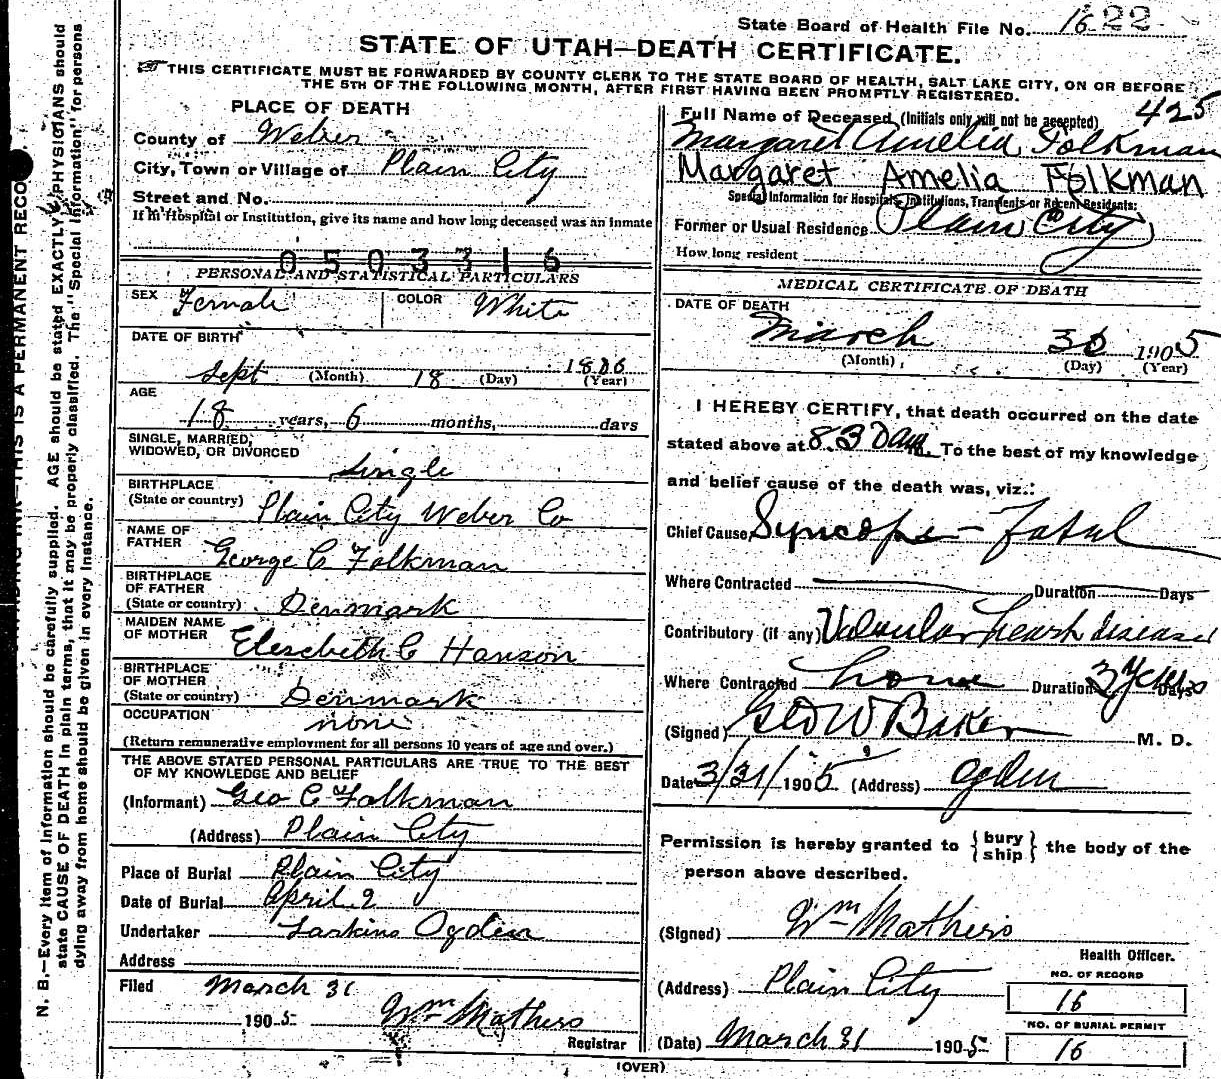 State Board of Health File No. 1622
STATE OF UTAH—DEATH CERTIFICATE.
THIS CERTIFICATE MUST BE FORWARDED BY COUNTY CLERK TO THE STATE BOARD OF HEALTH, SALT LAKE CITY, ON OR BEFORE
THE 5TH OF THE FOLLOWING MONTH, AFTER FIRST HAVING BEEN PROMPTLY REGISTERED.
PLACE OF DEATH
County of Weber
City, Town or Village of Plain City
Street and No.
If in Hospital or Institution, give its name and how long deceased was an inmate
0503316
PERSONAL AND STATISTICAL PARTICULARS
SEX Female COLOR White
DATE OF BIRTH
Sept (Month) 18 (Day) 1886 (Year)
AGE
18 years, 6 months, days
SINGLE, MARRIED,
WIDOWED, OR DIVORCED single
BIRTHPLACE
(State or country) Plain City Weber Co
NAME OF
FATHER George C Folkman
BIRTHPLACE
OF FATHER
(State or country) Denmark
MAIDEN NAME
OF MOTHER Elesebeth C Hanson
BIRTHPLACE
OF MOTHER
(State or country) Denmark
OCCUPATION none
(Return remunerative employment for all persons 10 years of age and over.)
THE ABOVE STATED PERSONAL PARTICULARS ARE TRUE TO THE BEST
OF MY KNOWLEDGE AND BELIEF
(Informant) Geo C Folkman
(Address) Plain City
Place of Burial Plain City
Date of Burial April 2
Undertaker Larkins Ogden
Address
Filed March 31
1905 Wm Mathers
Registrar
425
Full Name of Deceased (Initials only will not be accepted)
Margaret Amelia Folkman
Margaret Amelia Folkman
Special Information for Hospitals, Institutions, Transients or Recent Residents:
Former or Usual Residence Plain City
How long resident
MEDICAL CERTIFICATE OF DEATH
DATE OF DEATH
March 30 1905
(Month) (Day) (Year)
I HEREBY CERTIFY, that death occurred on the date
stated above at 8.30 am. To the best of my knowledge
and belief cause of the death was, viz.:
Chief Cause, Syncope - Fatal
Where Contracted Duration Days
Contributory (if any) Valvular heart disease
Where Contracted home Duration 3 years Days
(Signed) Geo W Baker M. D.
Date 3/31/1905 (Address) Ogden
Permission is hereby granted to {bury
ship} the body of the
person above described.
(Signed) Wm Mathers
Health Officer.
(Address) Plain City
NO. OF RECORD
16
NO. OF BURIAL PERMIT
16
(Date) March 31 1905
(OVER)
THIS IS A PERMANENT RECO
N. B.—Every item of information should be carefully supplied. AGE should be stated EXACTLY. PHYSICIANS should
state CAUSE OF DEATH in plain terms, that it may be properly classified. The "Special Information" for persons
dying away from home should be given in every instance.